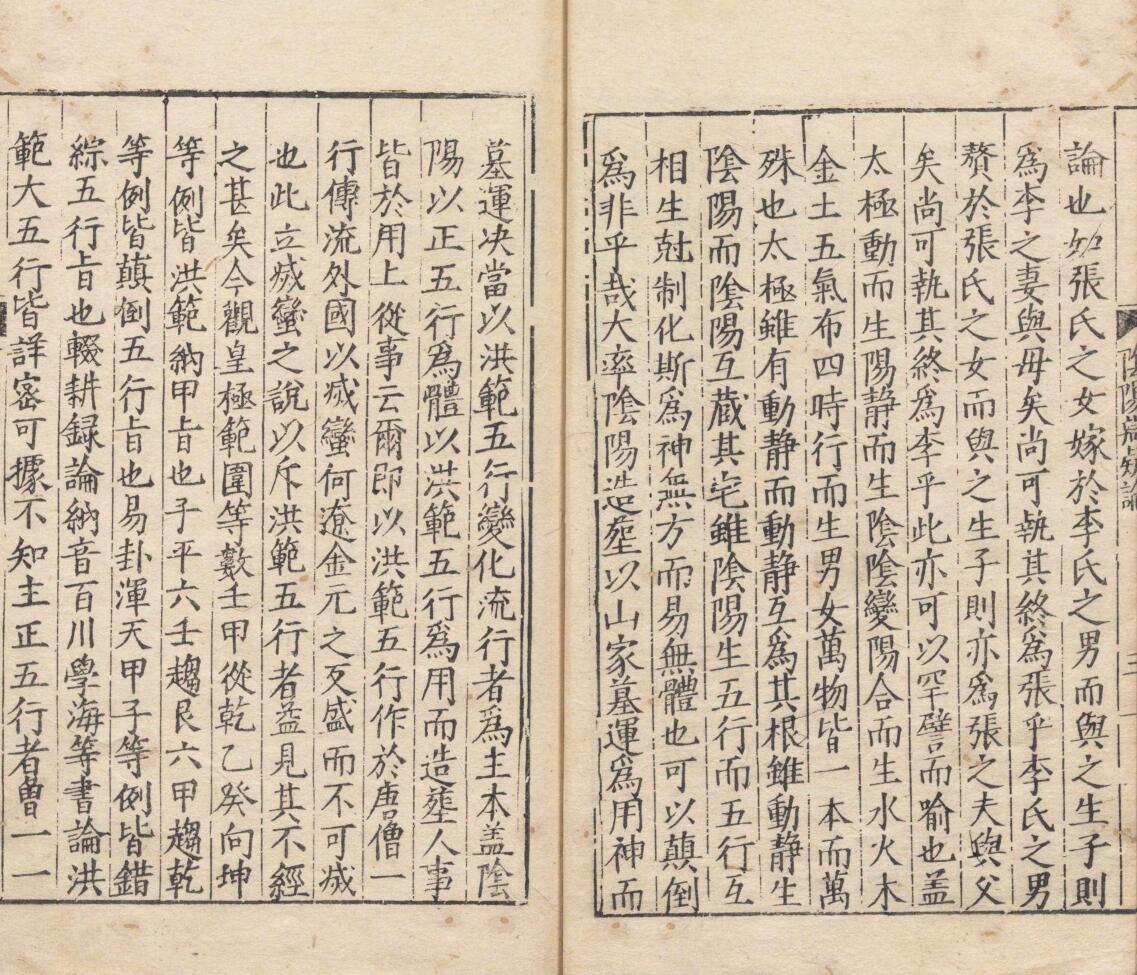 陰陽定疑論
三
論也如張氏之女嫁於李氏之男而與之生子則
爲李之妻與母矣尚可執其終爲張乎李氏之男
贅於張氏之女而與之生子則亦爲張之夫與父
矣尚可執其終爲李乎此亦可以罕譬而喻也盖
太極動而生陽静而生陰陰變陽合而生水火木
金土五氣布四時行而生男女萬物皆一本而萬
殊也太極雖有動静而動静互爲其根雖動静生
陰陽而陰陽互藏其宅雖陰陽生五行而五行互
相生尅制化斯爲神無方而易無體也可以顛倒
爲非乎哉大率陰陽造塟以山家墓運爲用神而
墓運决當以洪範五行變化流行者爲主本盖陰
陽以正五行爲體以洪範五行爲用而造塟人事
皆於用上從事云爾即以洪範五行作於唐僧一
行傳流外國以烕蠻何遼金元之叐盛而不可烕
也此立烕蠻之說以斥洪範五行者益見其不經
之甚矣今觀皇極範圍等數壬甲從乾乙癸向坤
等例皆洪範納甲旨也子平六壬趨艮六甲趨乾
等例皆顛倒五行旨也易卦渾天甲子等例皆錯
綜五行旨也輟耕録論納音百川學海等書論洪
範大五行皆詳密可據不知主正五行者曽一一